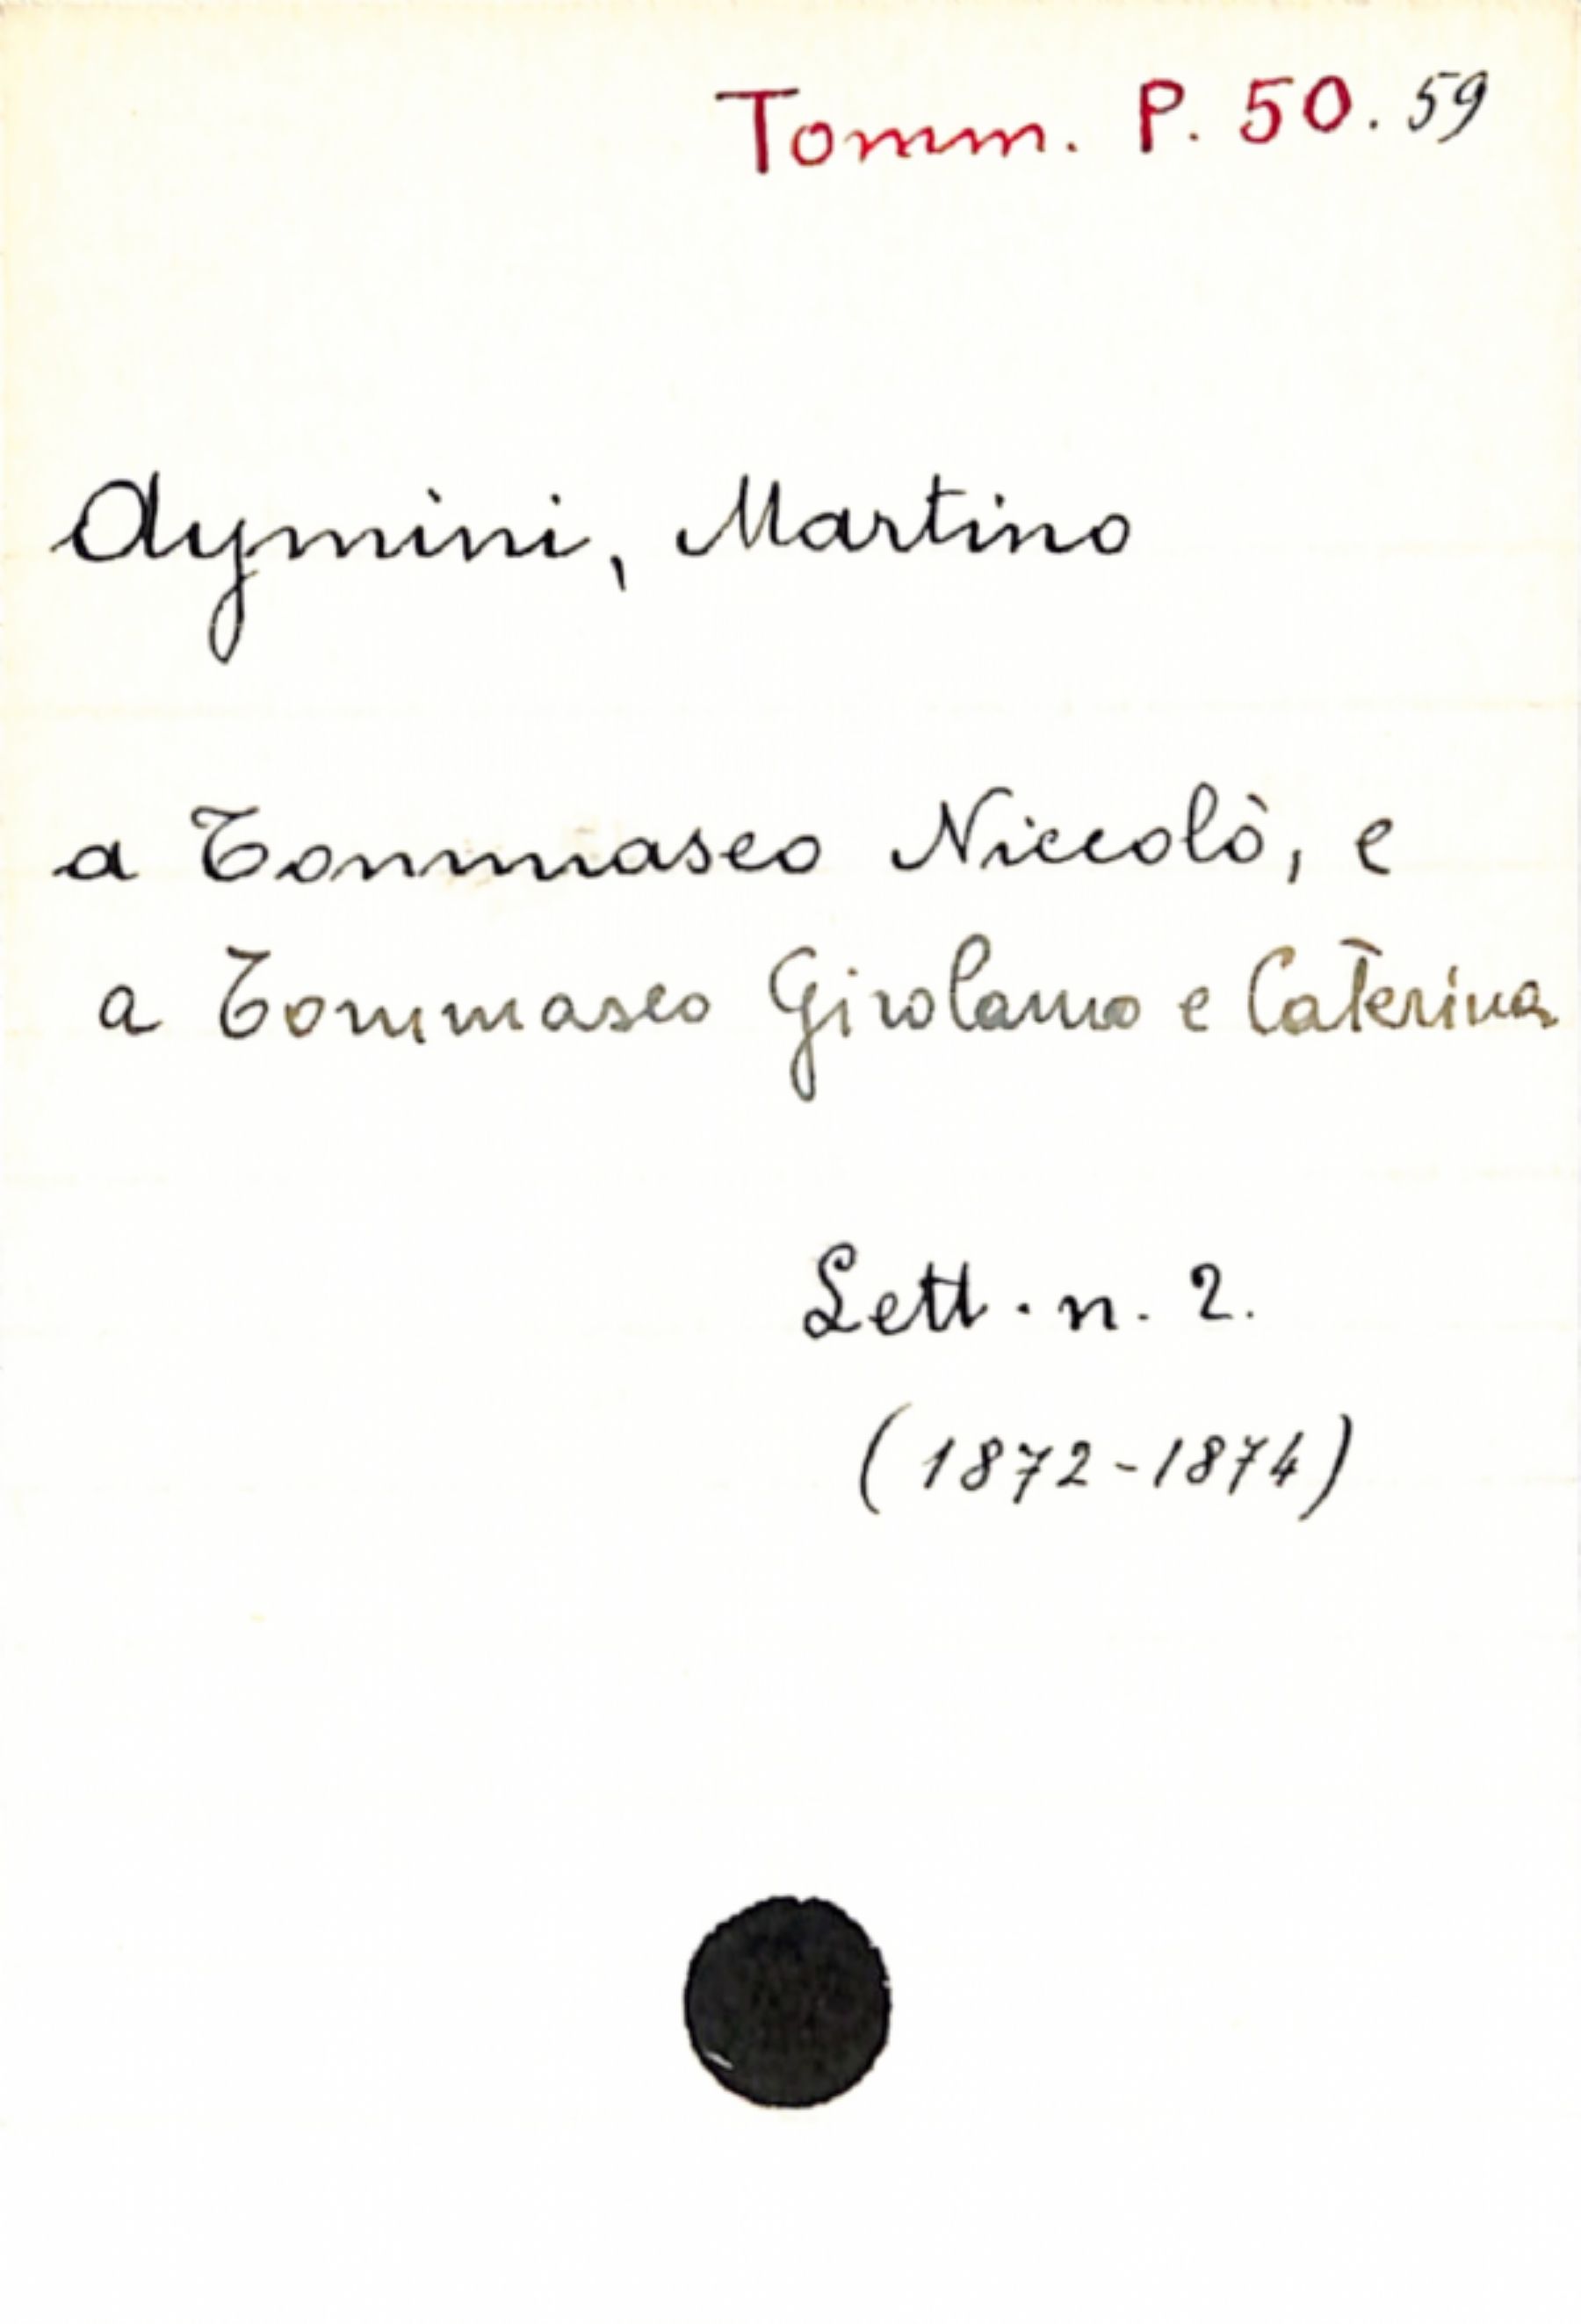 Tomm. P. 50. 59
Aymini, Martino
a Tommaseo Niccolò, e
a Tommaseo Girolamo e Caterina
Lett. n. 2.
(1872-1874)